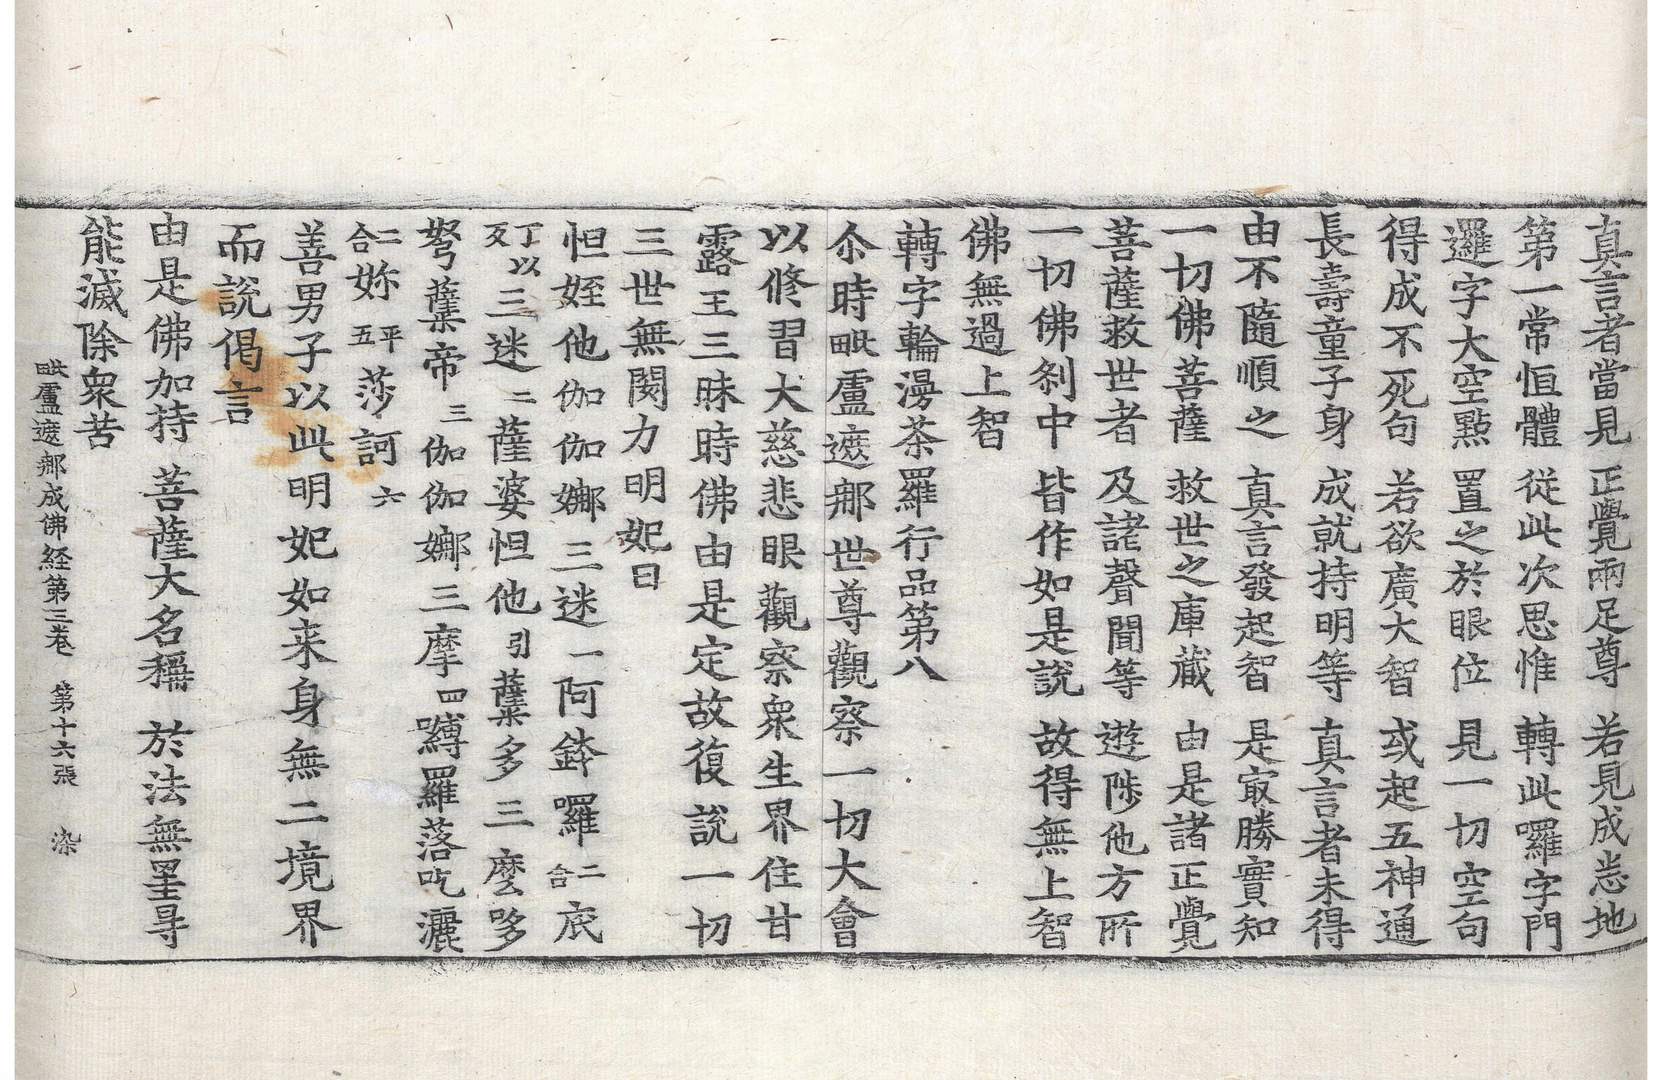 真言者當見　正覺兩足尊　若見成悉地
第一常恒體　從此次思惟　轉此囉字門
邏字大空點　置之於眼位　見一切空句
得成不死句　若欲廣大智　或起五神通
長壽童子身　成就持明等　真言者未得
由不隨順之　真言發起智　是㝡勝實知
一切佛菩薩　救世之庫藏　由是諸正覺
菩薩救世者　及諸聲聞等　遊陟他方所
一切佛刹中　皆作如是說　故得無上智
佛無過上智
轉字輪漫茶羅行品第八
尒時毗盧遮那世尊觀察一切大會
以修習大慈悲眼觀察衆生界住甘
露王三昧時佛由是定故復說一切
三世無閡力明妃曰
怛姪他伽伽娜三迷一阿鉢囉二合底
丁以反三迷二薩婆怛他引蘗多三麽哆
弩蘗帝三伽伽娜三摩四嚩羅落吃灑
二合妳平五莎訶六
善男子以此明妃如来身無二境界
而說偈言
由是佛加持　菩薩大名稱　於法無罣㝵
能滅除衆苦
毗盧遮那成佛経第三卷　第十六張　染